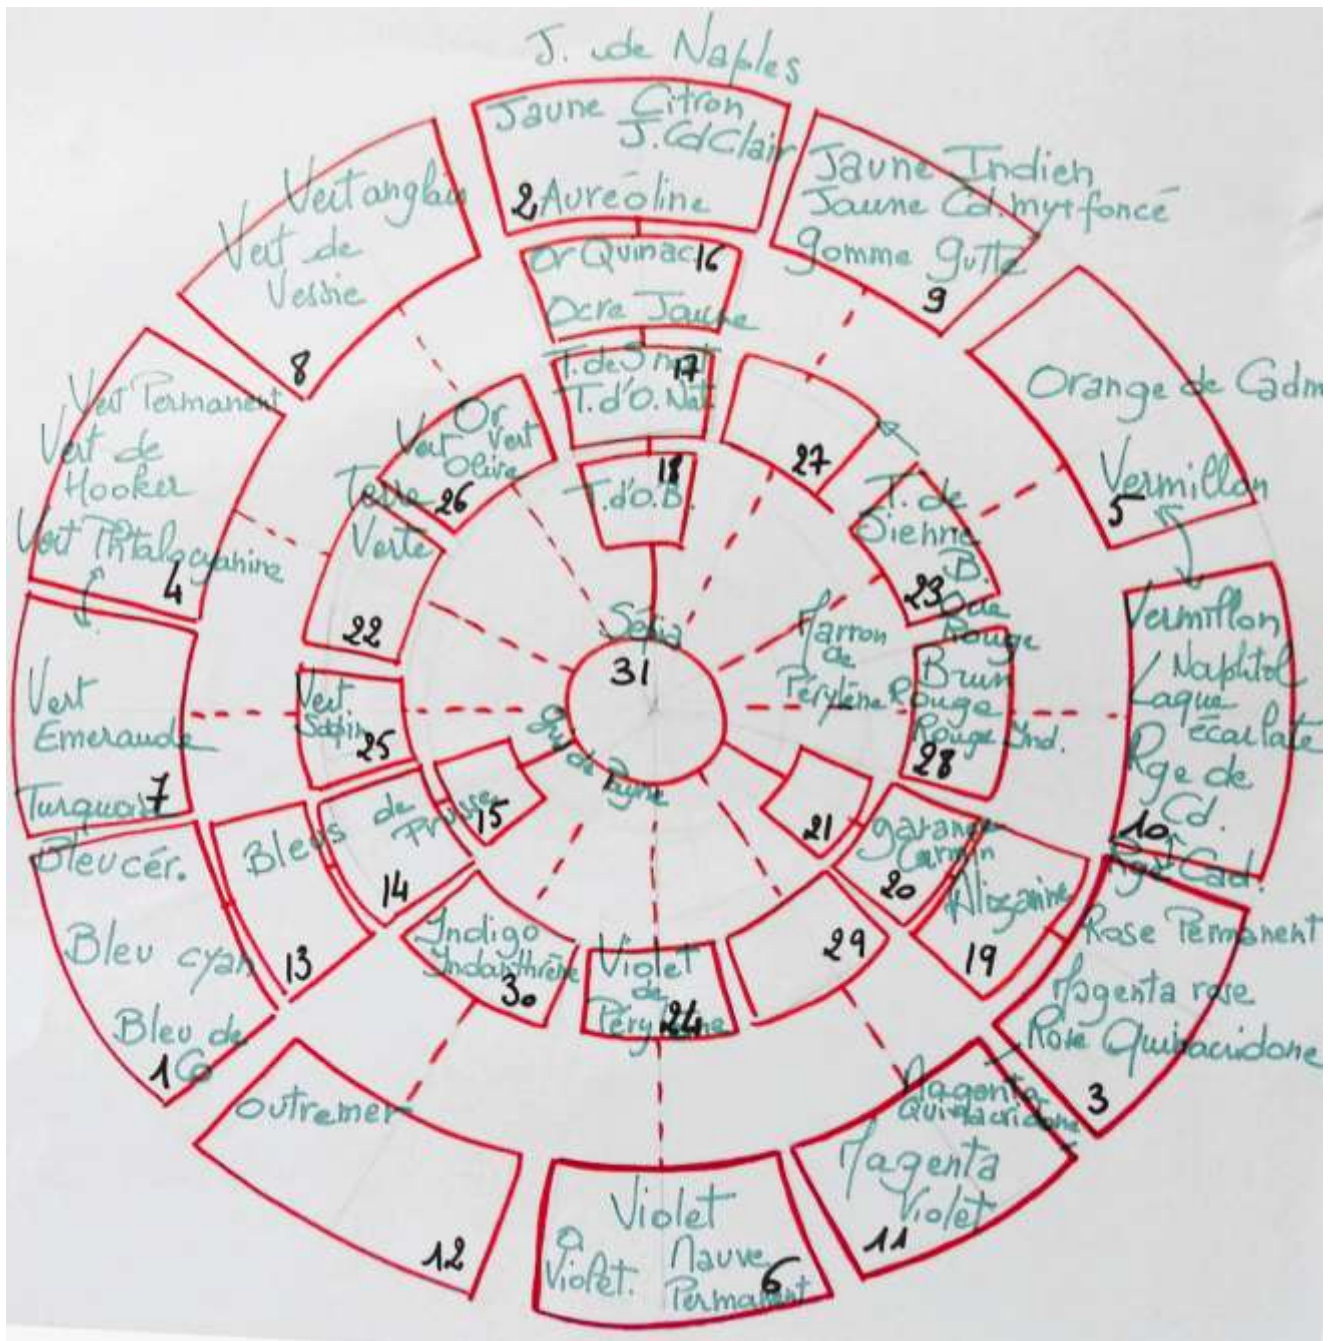 J. de Naples
Jaune Citron
J. Cd Clair
2 Auréoline
Jaune Indien
Jaune Cd. moy + foncé
gomme gutte
9
Orange de Cadm
Vermillon
5
Vermillon
Naphtol
Laque
écarlate
Rge de
Cd.
10
Rge Cad.
Rose Permanent
Magenta rose
Rose Quinacridone
3
Magenta
Quinacridone
Magenta
Violet
11
Violet
O
Violet.
Mauve
Permanent
6
Outremer
12
Bleu cér.
Bleu cyan
Bleu de
1 Co
Vert
Emeraude
Turquoise
7
Vert Permanent
Vert de
Hooker
Vert Phtalocyanine
4
Vert anglais
Vert de
Vessie
8
Or Quinac 16
Ocre Jaune
T. de S nat 17
T. d'O. Nat
18
T. d'O. B.
27
T. de
Sienne
B.
23
Ocre
Rouge
Brun
Rouge
Rouge Ind.
28
Marron
de
Pérylène
21
garance
Carmin
20
Alizarine
19
29
Violet
de
Pérylène
24
Indigo
Indanthrène
30
Bleus de Prusse
13
14
15
Vert
Sapin
25
Terre
Verte
22
Or
Vert Vert
Olive
26
Sépia
31
gris de Payne